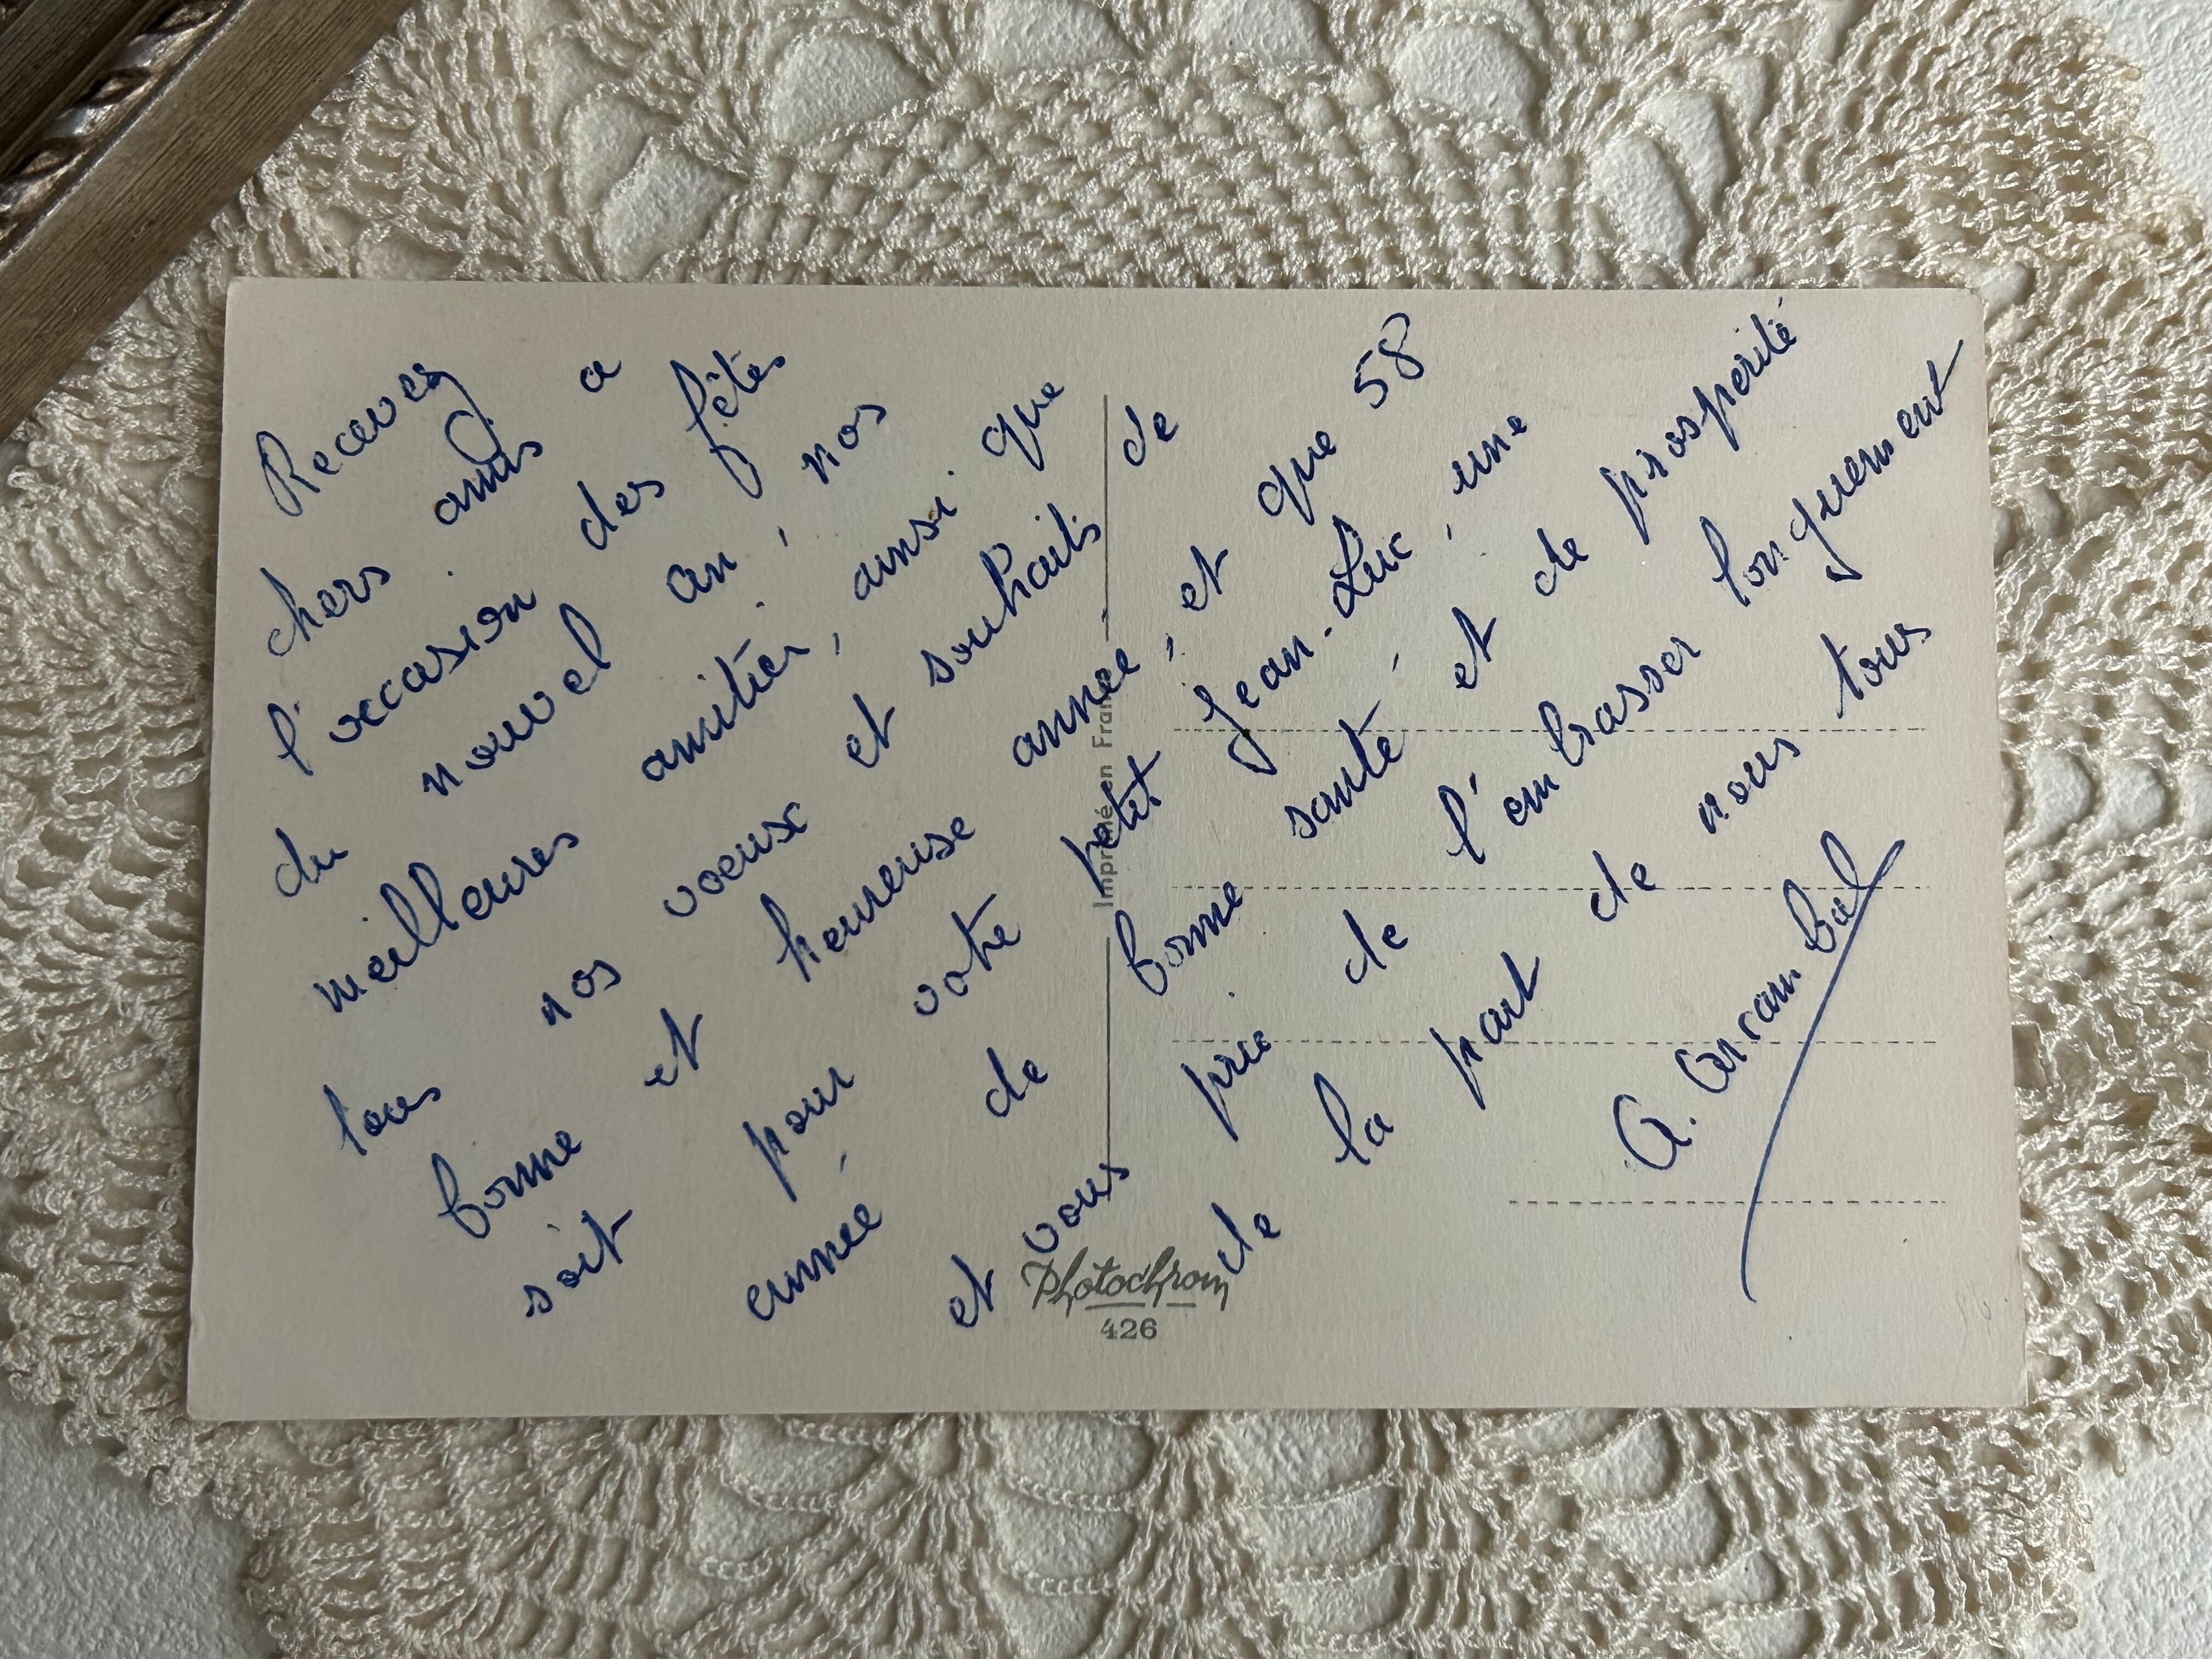 Recevez
chers amis a
l'occasion des fêtes
du nouvel an, nos
meilleures amitiés, ainsi que
tous nos voeux et souhaits de
bonne et heureuse année, et que 58
soit pour votre petit Jean-Luc, une
année, de bonne santé, et de prosperité
et vous prie de l'embrasser longuement
de la part de nous tous
Imprimé en France
Photochrom
426